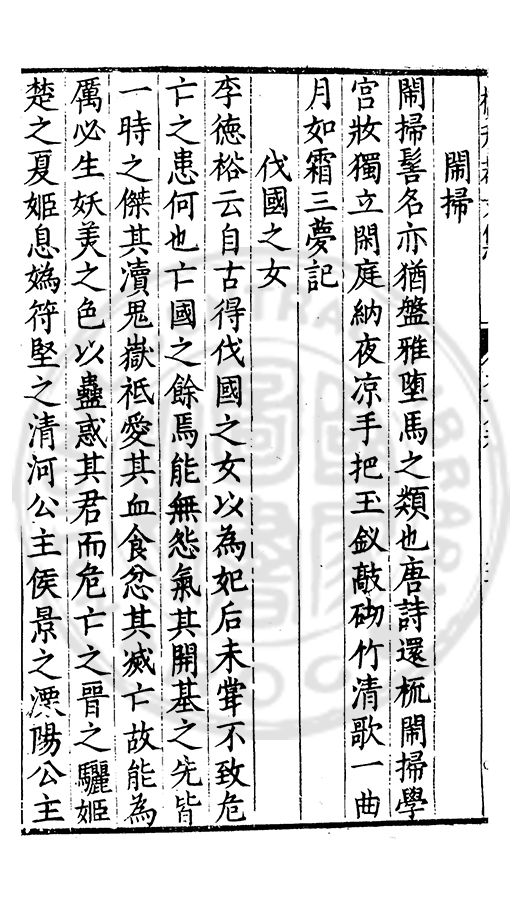 鬧掃
鬧掃髻名亦猶盤雅墮馬之類也唐詩還梳鬧掃學
宮妝獨立閑庭納夜凉手把玉釵敲砌竹清歌一曲
月如霜三夢記
伐國之女
李德裕云自古得伐國之女以為妃后未甞不致危
亡之患何也亡國之餘焉能無怨氣其開基之先皆
一時之傑其瀆鬼嶽祇愛其血食忿其滅亡故能為
厲必生妖美之色以蠱惑其君而危亡之晉之驪姬
楚之夏姬息媯符堅之清河公主侯景之溧陽公主